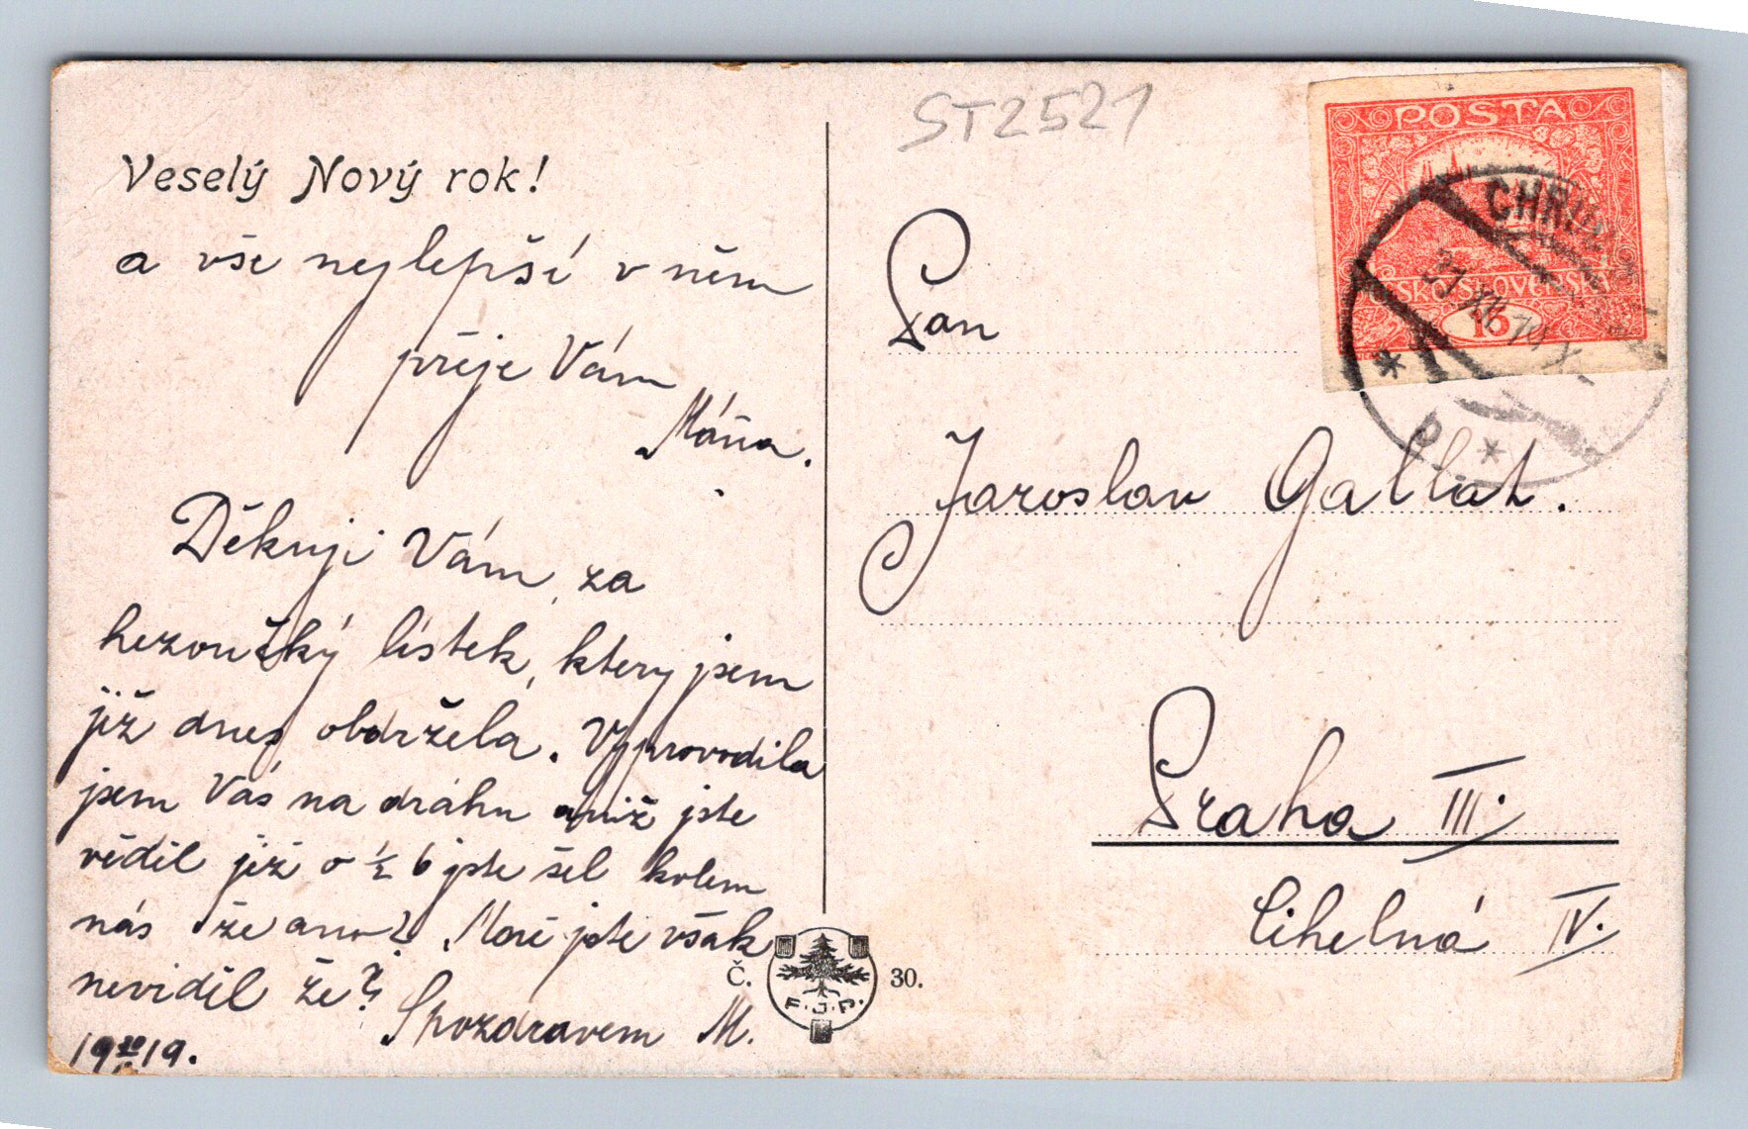 ST2521
Veselý Nový rok!
a vše nejlepší v něm
přeje Vám
Máňa.
Děkuji Vám za
hezoučký lístek, který jsem
již dnes obdržela. Vyprovodila
jsem Vás na dráhu aniž jste
věděl již o ½ 6 jste šel kolem
nás že ano? Mne jste však
neviděl že?
Spozdravem M.
19 19.
Č. 30.
F.J.P.
POSTA
ČESKOSLOVENSKÁ
15
CHRUDIM
31 XII
Pan
Jaroslav Gallat.
Praha III.
Cihelná IV.